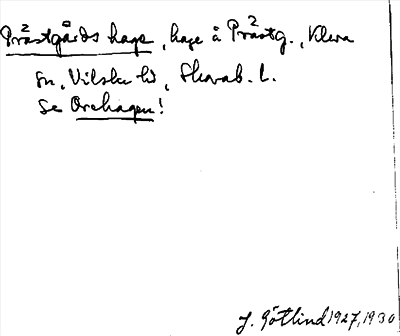 Prästgårds hage, hage å Prästg., Kleva
sn, Vilske hd, Skarab. l.
Se Orehagen!
J. Götlind 1927, 1930